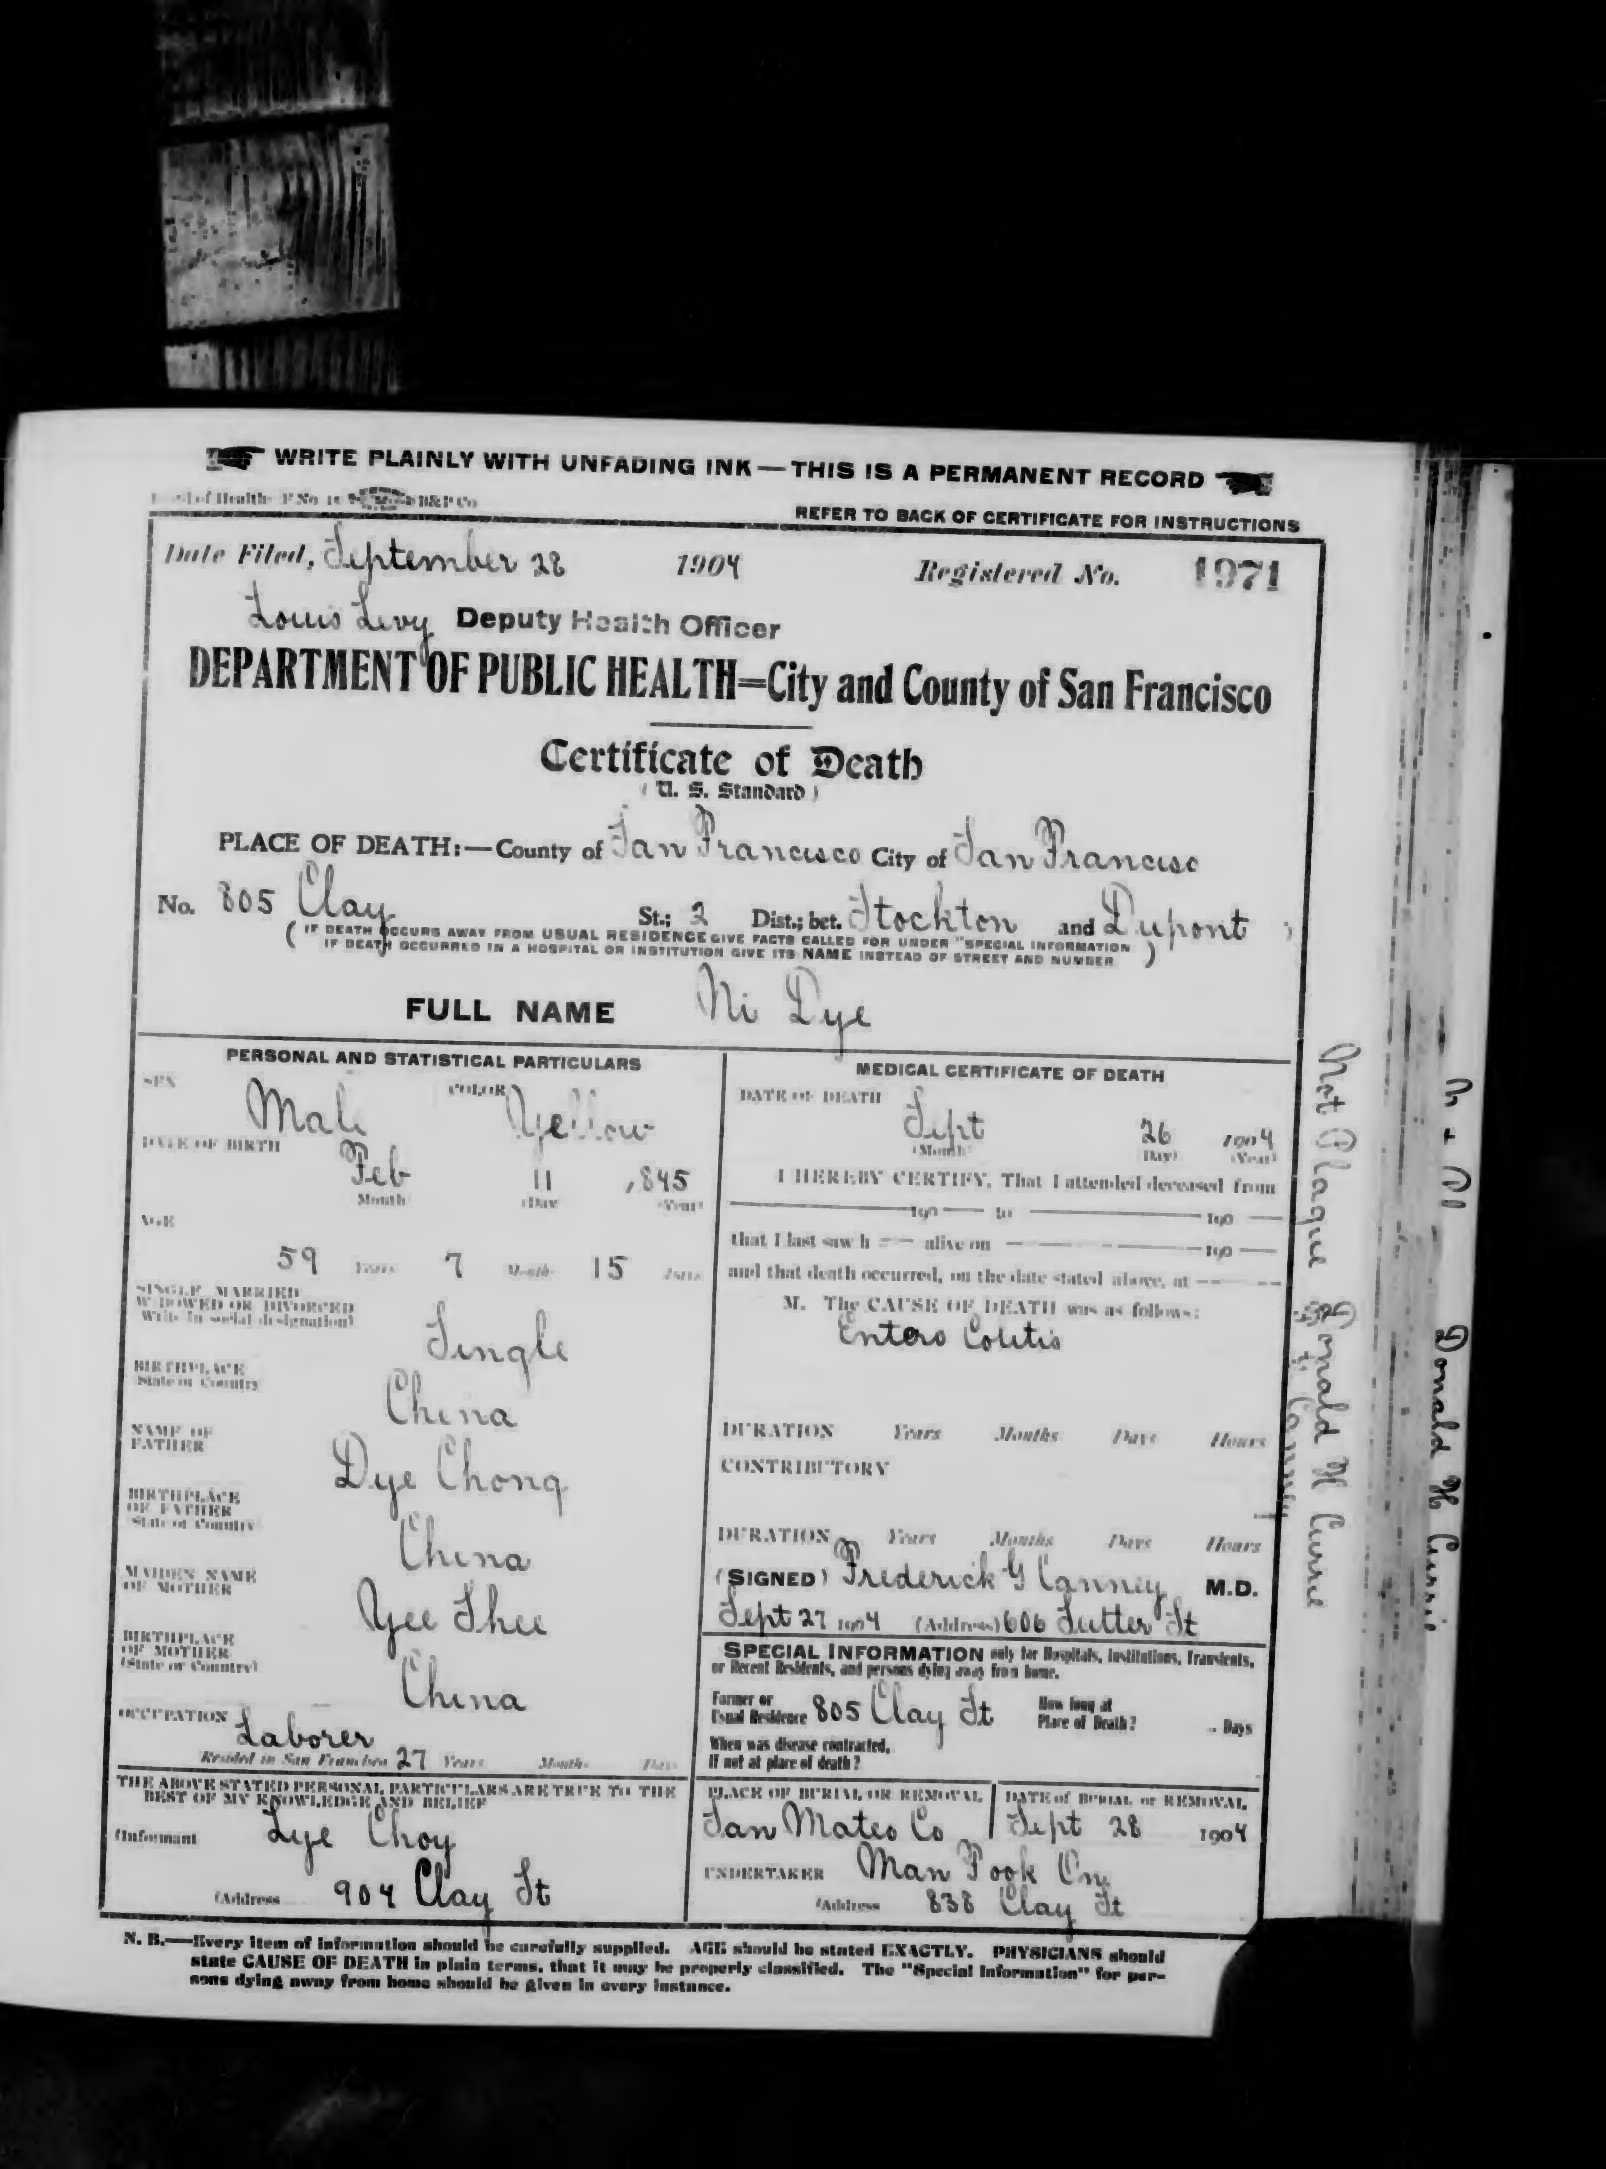 WRITE PLAINLY WITH UNFADING INK—THIS IS A PERMANENT RECORD
of Health F No. B&P Co
REFER TO BACK OF CERTIFICATE FOR INSTRUCTIONS
Date Filed, September 28 1904 Registered No. 1971
Louis Levy Deputy Health Officer
DEPARTMENT OF PUBLIC HEALTH=City and County of San Francisco
Certificate of Death
(U. S. Standard)
PLACE OF DEATH:—County of San Francisco City of San Francisc
No. 805 Clay St.; 2 Dist.; bet. Stockton and Dupont
(IF DEATH OCCURS AWAY FROM USUAL RESIDENCE GIVE FACTS CALLED FOR UNDER "SPECIAL INFORMATION"
IF DEATH OCCURRED IN A HOSPITAL OR INSTITUTION GIVE ITS NAME INSTEAD OF STREET AND NUMBER)
FULL NAME Ni Dye
PERSONAL AND STATISTICAL PARTICULARS
SEX Male COLOR Yellow
DATE OF BIRTH
Feb 11 1845
Month Day (Year)
AGE
59 Years 7 Months 15 Days
SINGLE, MARRIED
WIDOWED OR DIVORCED
Write in social designation)
Single
BIRTHPLACE
State or Country
China
NAME OF
FATHER
Dye Chong
BIRTHPLACE
OF FATHER
State or Country
China
MAIDEN NAME
OF MOTHER
Yee Shee
BIRTHPLACE
OF MOTHER
(State or Country)
China
OCCUPATION Laborer
Resided in San Francisco 27 Years Months Days
THE ABOVE STATED PERSONAL PARTICULARS ARE TRUE TO THE
BEST OF MY KNOWLEDGE AND BELIEF
(Informant Lye Choy
(Address 904 Clay St
MEDICAL CERTIFICATE OF DEATH
DATE OF DEATH
Sept 26 1904
(Month) Day) (Year)
I HEREBY CERTIFY, That I attended deceased from
190 to 190
that I last saw h alive on 190
and that death occurred, on the date stated above, at
M. The CAUSE OF DEATH was as follows:
Entero Colitis
DURATION Years Months Days Hours
CONTRIBUTORY
DURATION Years Months Days Hours
(SIGNED) Frederick G Canney M.D.
Sept 27 1904 (Address) 606 Sutter St
SPECIAL INFORMATION only for Hospitals, Institutions, Transients,
or Recent Residents, and persons dying away from home.
Former or
Usual Residence 805 Clay St
How long at
Place of Death? Days
When was disease contracted,
If not at place of death?
PLACE OF BURIAL OR REMOVAL
San Mateo Co
DATE of BURIAL or REMOVAL
Sept 28 1904
UNDERTAKER Man Fook On
(Address 838 Clay St
N. B.—Every item of information should be carefully supplied. AGE should be stated EXACTLY. PHYSICIANS should
state CAUSE OF DEATH in plain terms, that it may be properly classified. The "Special Information" for per-
sons dying away from home should be given in every instance.
Not Plague Donald H Currie
Donald H Currie